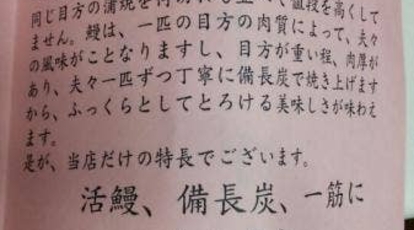 同じ目方の蒲焼を何
値段を高くして
ません。鰻は、一匹の目方の肉質によって、夫々
の風味がことなりますし、目方が重い程、肉厚が
あり、夫々一匹ずつ丁寧に備長炭で焼き上げます
から、ふっくらとしてとろける美味しさが味わえ
ます。
是が、当店だけの特長でございます。
活鰻、備長炭、一筋に